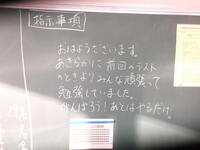 指示事項
おはようございます。
あきらかに前回のテスト
のときよりみんな頑張って
勉強していました。
がんばろう！あとはやるだけ。